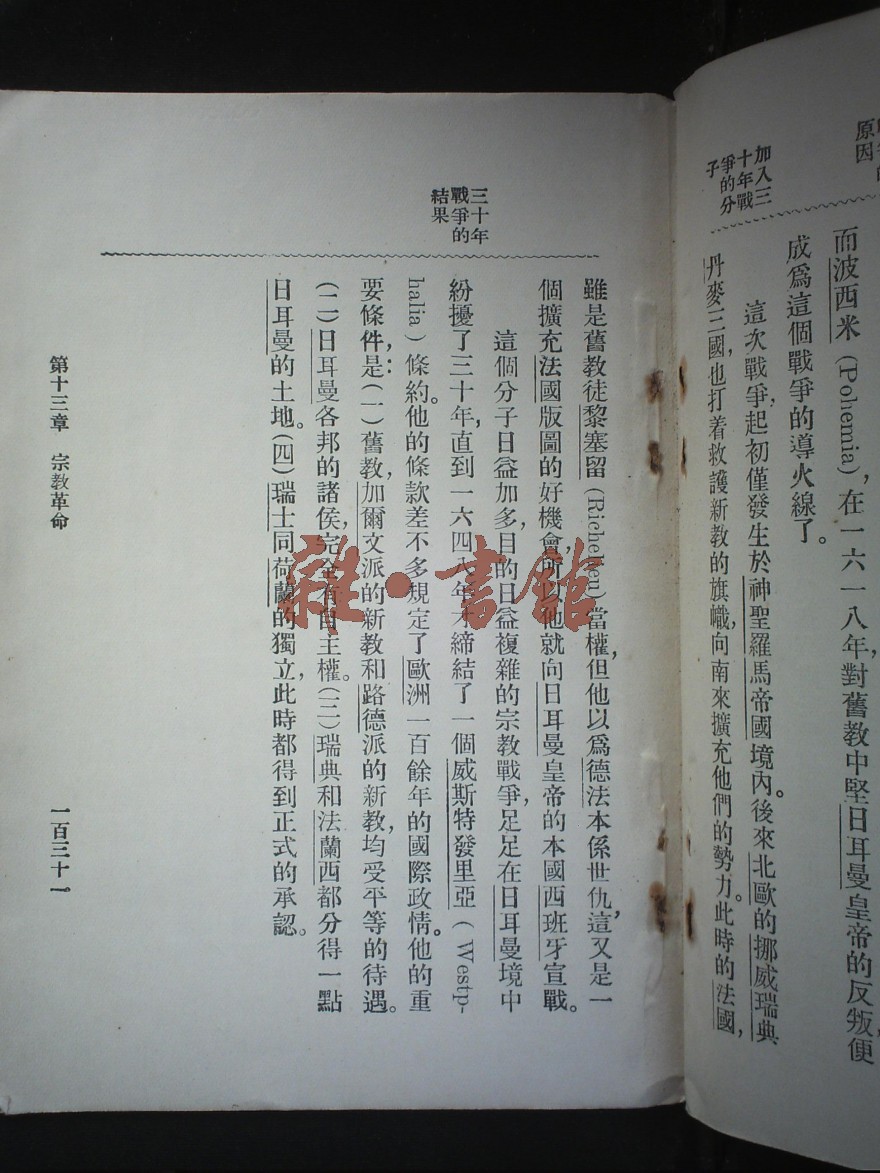 原因
而波西米 (Pohemia), 在一六一八年,對舊教中堅日耳曼皇帝的反叛,便
成爲這個戰爭的導火線了。
加入三
十年戰
爭的分
子
這次戰爭,起初僅發生於神聖羅馬帝國境內。後來北歐的挪威瑞典
丹麥三國,也打着救護新教的旗幟,向南來擴充他們的勢力。此時的法國,
雖是舊教徒黎塞留 (Richelieu) 當權,但他以爲德法本係世仇,這又是一
個擴充法國版圖的好機會,所以他就向日耳曼皇帝的本國西班牙宣戰。
三十年
戰爭的
結果
這個分子日益加多,目的日益複雜的宗教戰爭,足足在日耳曼境中
紛擾了三十年,直到一六四八年,才締結了一個威斯特發里亞 ( Westp-
halia ) 條約。他的條款差不多規定了歐洲一百餘年的國際政情。他的重
要條件,是:(一)舊教,加爾文派的新教和路德派的新教,均受平等的待遇。
(二)日耳曼各邦的諸侯,完全有自主權。(三)瑞典和法蘭西都分得一點
日耳曼的土地。(四)瑞士同荷蘭的獨立,此時都得到正式的承認。
第十三章 宗教革命
一百三十一
雜·書館